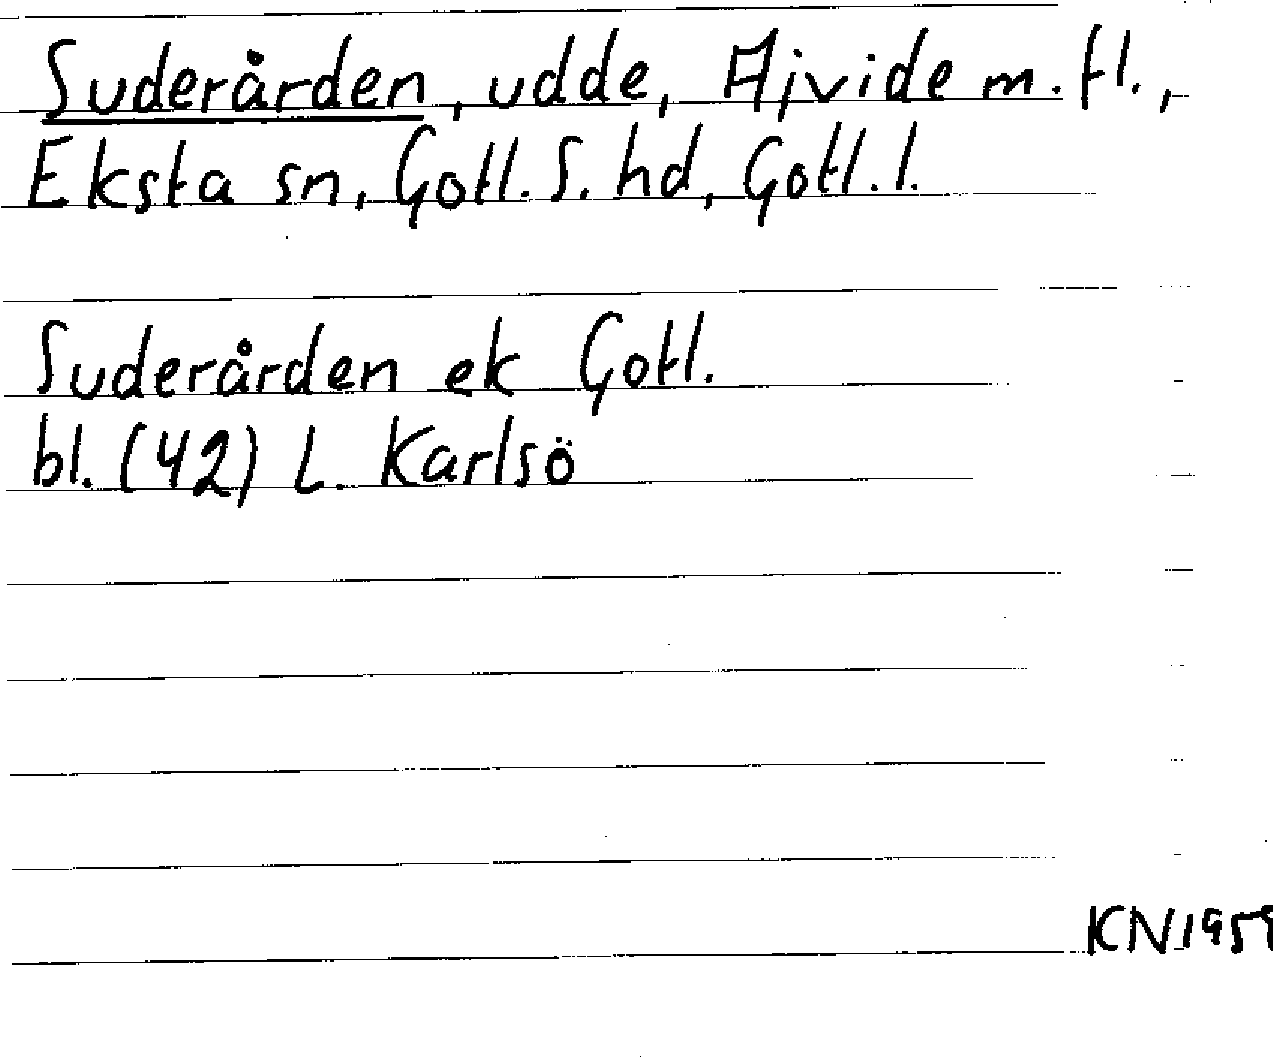 Suderården, udde, Ajvide m. fl.,
Eksta sn, Gotl. S. hd, Gotl. l.
Suderården ek Gotl.
bl. (42) L. Karlsö